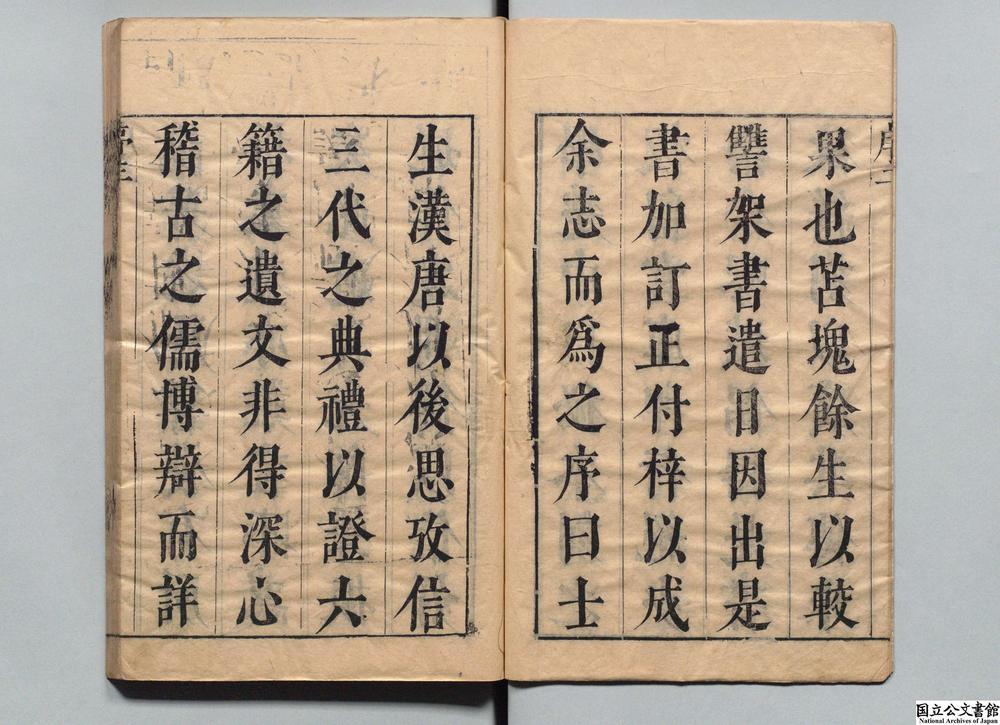 序二
果也苫塊餘生以較
讐架書遣日因出是
書加訂正付梓以成
余志而爲之序曰士
生漢唐以後思攷信
三代之典禮以證六
籍之遺文非得深心
稽古之儒博辯而詳
序三
国立公文書館
National Archives of Japan